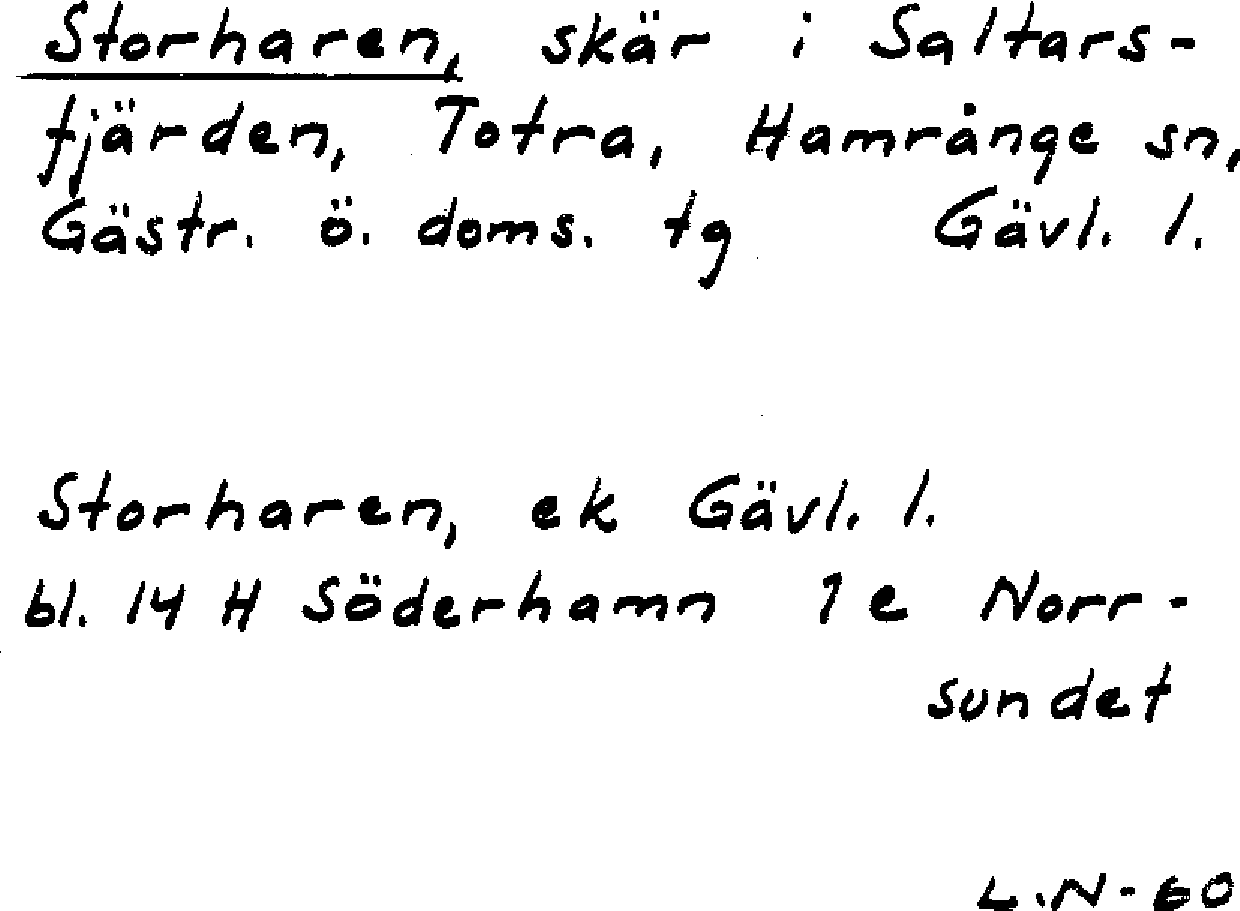 Storharen, skär i Saltars-
fjärden, Totra, Hamrånge sn,
Gästr. ö. doms. tg Gävl. l.
Storharen, ek Gävl. l.
bl. 14 H Söderhamn 1 e Norr-
sundet
L.N-60